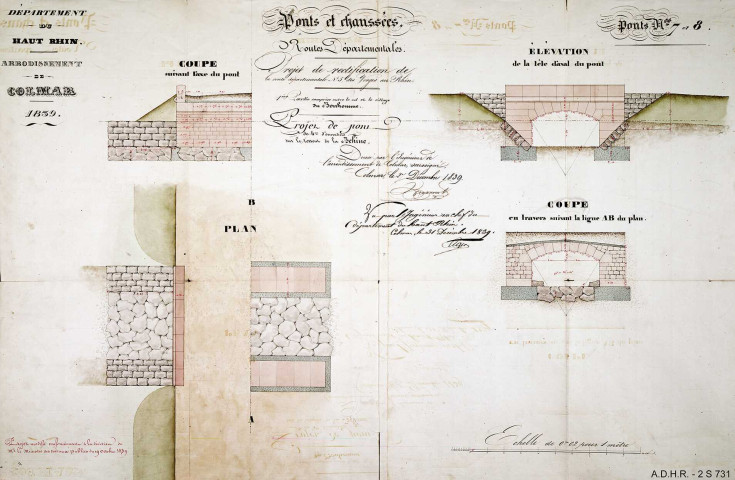 DÉPARTEMENT
DU
HAUT RHIN.
ARRODISSEMENT
DE
COLMAR
1839.
Ponts et chaussées.
Routes Départementales.
Projet de rectification de
la route départementale N° 5 des Vosges au Rhin.
1ère Partie comprise entre le col et le village
du Bonhomme.
Projet de pont
de 4m d'ouverture
sur le torrent de la Béhine.
Dressé par l'Ingénieur de
l'arrondissement de Colmar, soussigné
Colmar, le Décembre 1839.
Vu par l'Ingénieur en chef du
département du haut Rhin.
Colmar, le 31 Décembre 1839.
Ponts Nos 7 et 8.
COUPE
suivant l'axe du pont
ÉLÉVATION
de la tête d'aval du pont
B
PLAN
A
COUPE
en travers suivant la ligne AB du plan.
Echelle de 0m02 pour 1 mètre
A.D.H.R. - 2 S 731